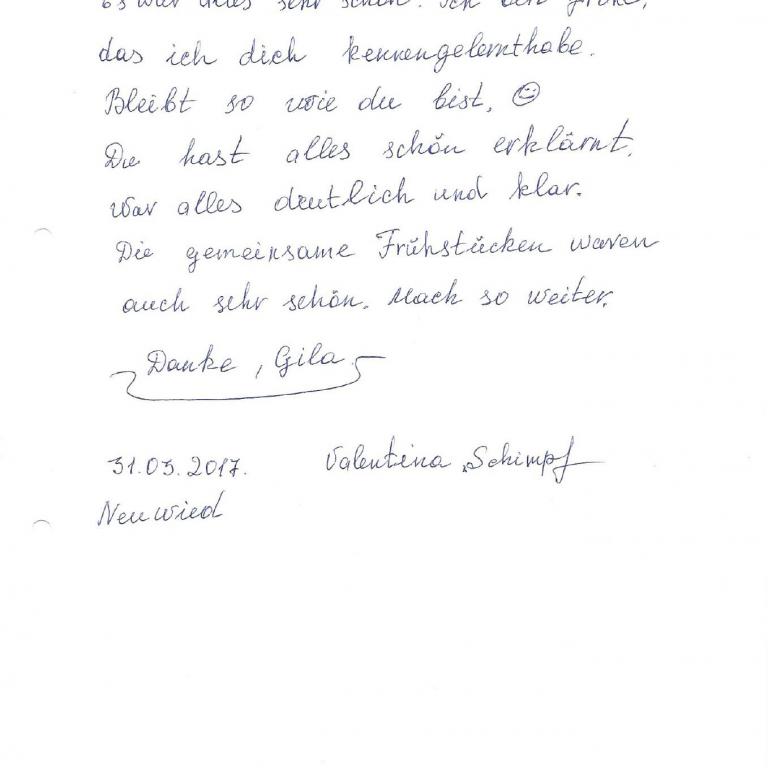 Es war alles sehr schön. Ich bin frohe,
das ich dich kennengelernthabe.
Bleibt so wie du bist. ☺
Du hast alles schön erklärnt.
War alles deutlich und klar.
Die gemeinsame Frühstücken waren
auch sehr schön. Mach so weiter.
Danke, Gila
31.03.2017. Valentina Schimpf
Neuwied